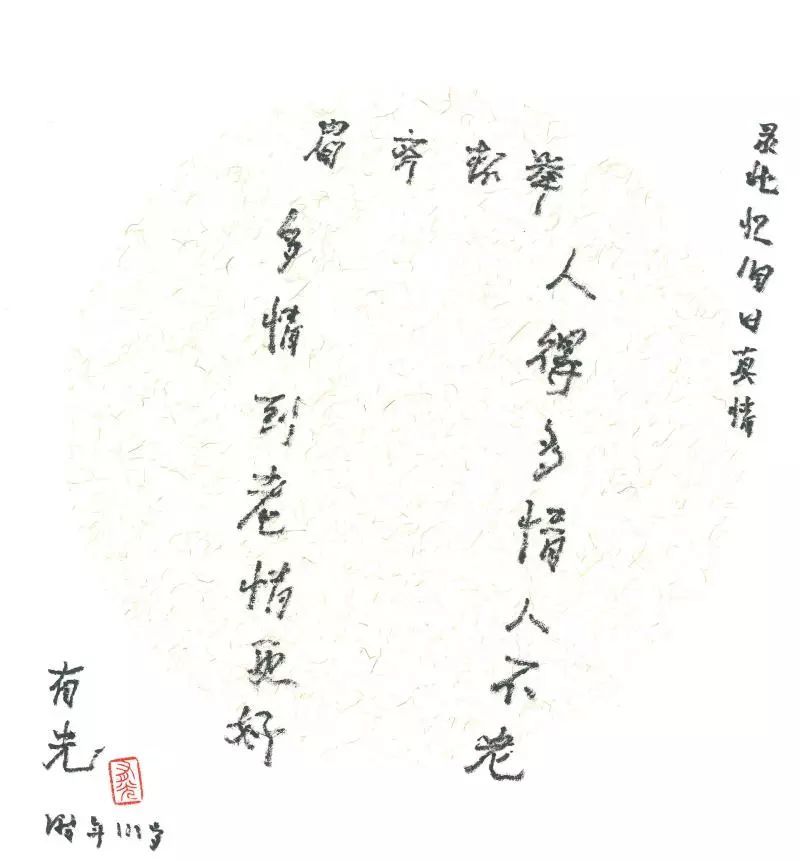 录此忆旧日真情
举案齐眉
人得多情人不老
多情到老情更好
有光
时年111岁
有光